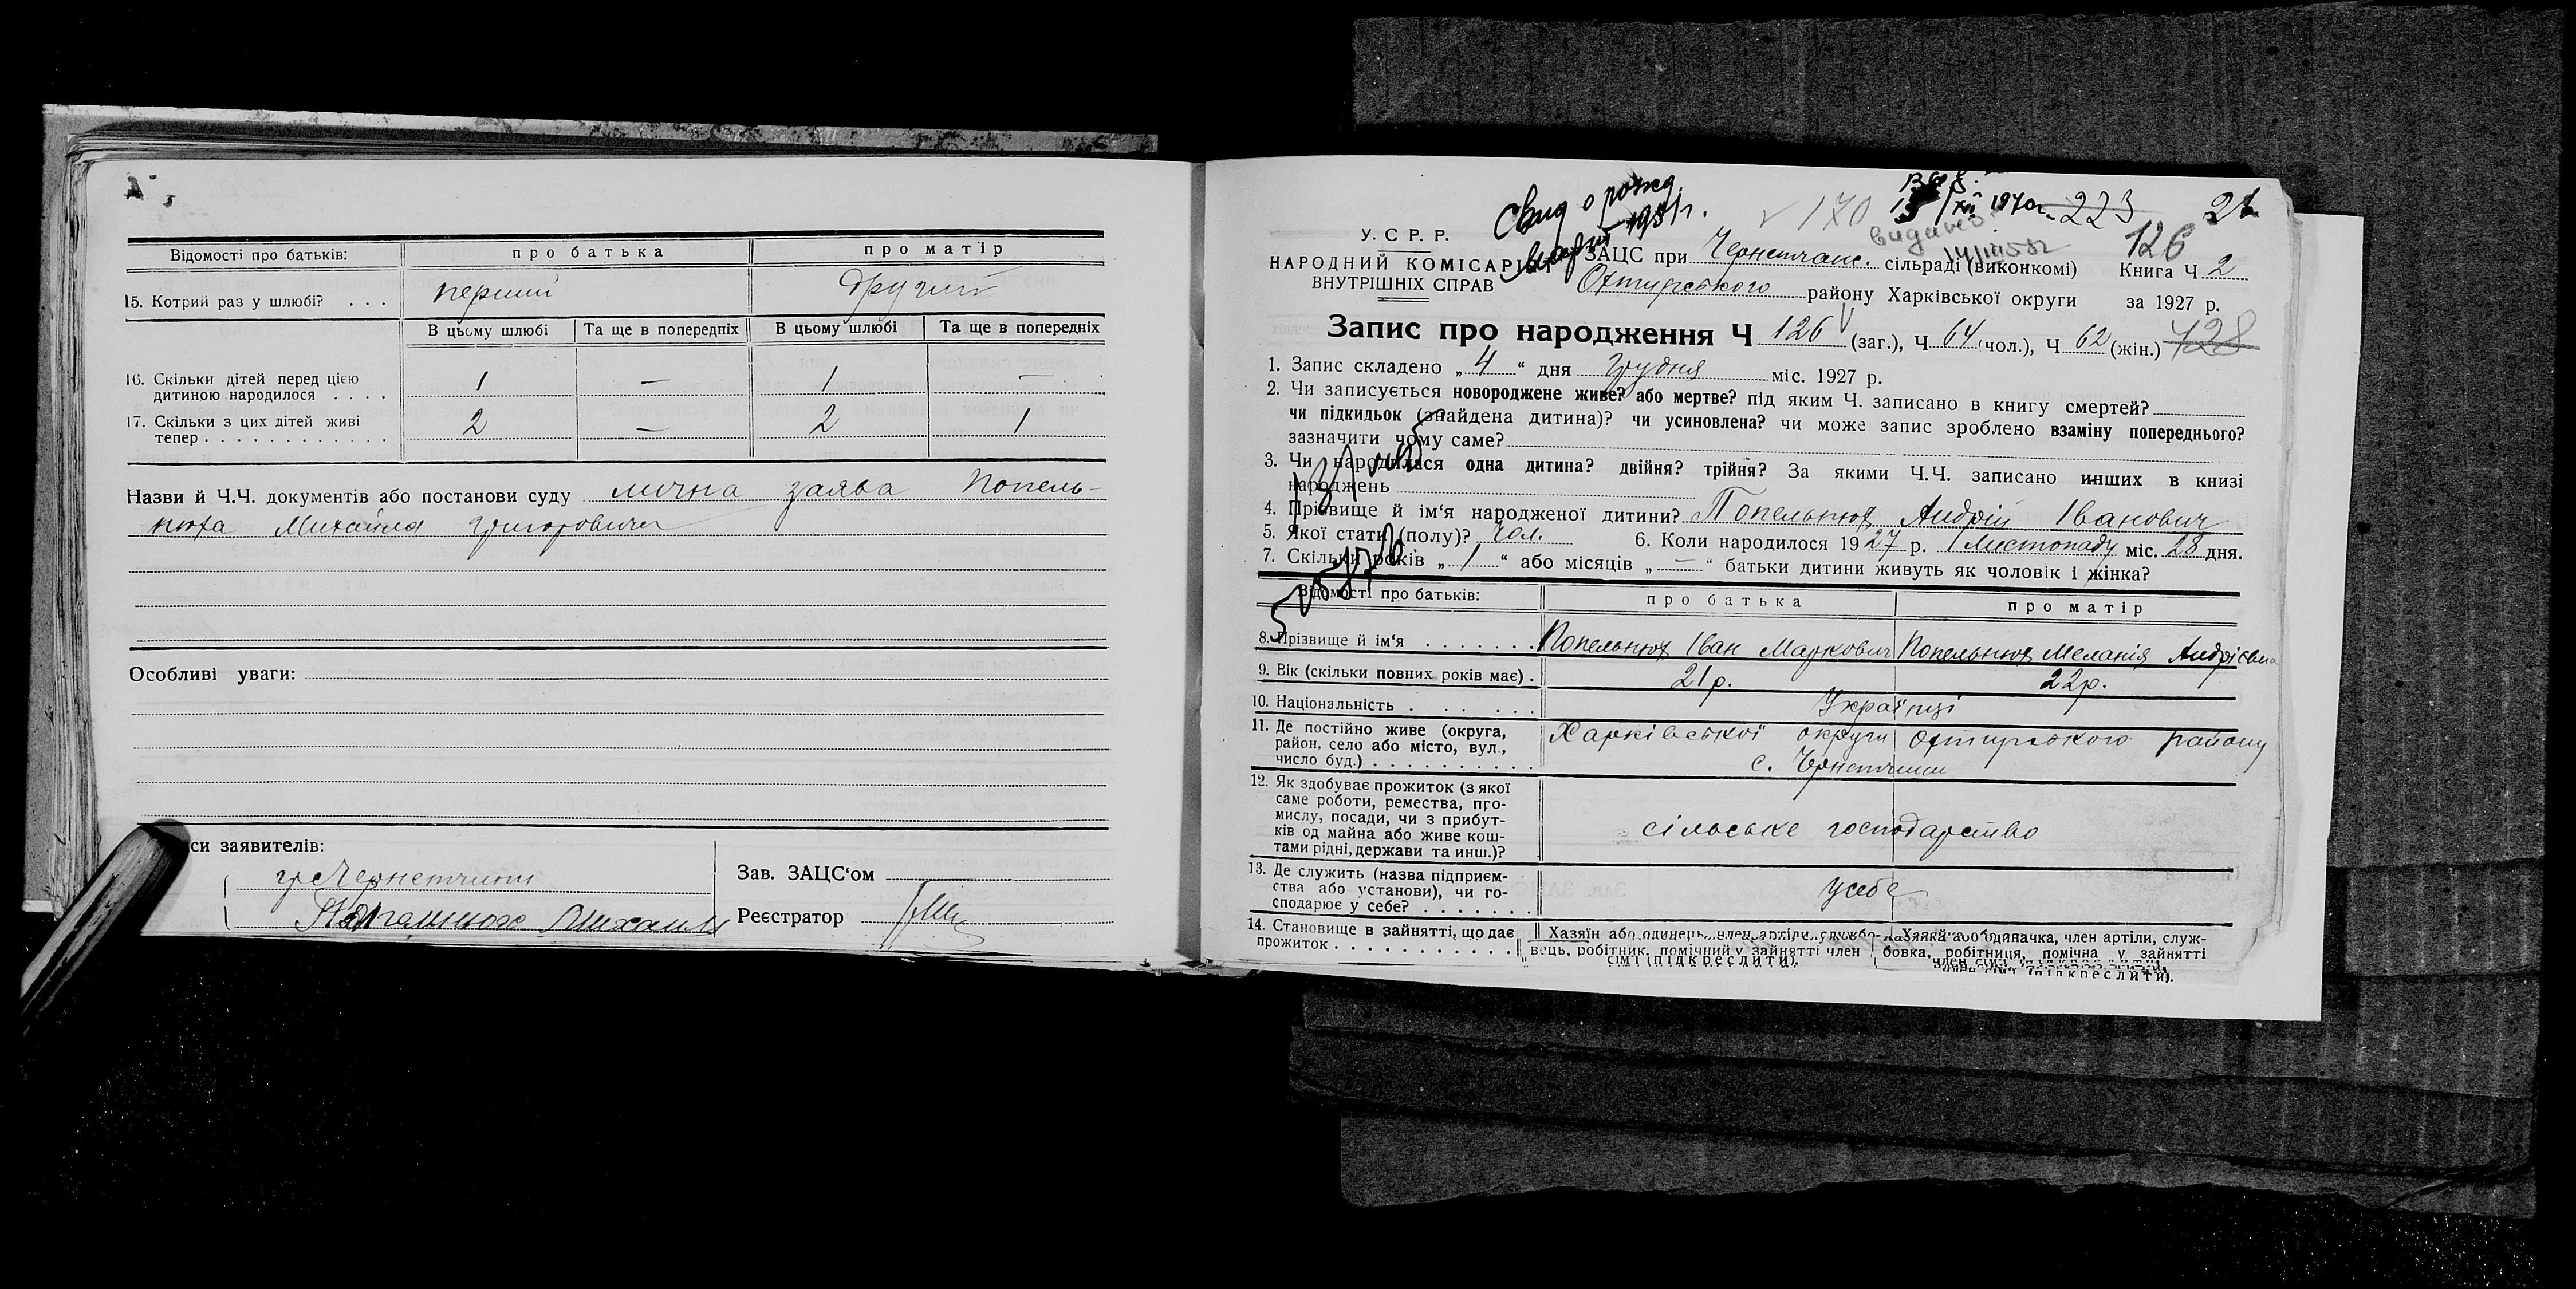 Відомості про батьків: про батька про матір
15. Котрий раз у шлюбі? . . . перший другий
В цьому шлюбі Та ще в попередніх В цьому шлюбі Та ще в попередніх
16. Скільки дітей перед цією
дитиною народилося . . . . 1 — 1 —
17. Скільки з цих дітей живі
тепер . . . . . . . . . . . . 2 — 2 1
Назви й Ч.Ч. документів або постанови суду лична заява Попель-
нюха Михайла Григоровича
Особливі уваги:
си заявителів:
гр Чернетчини
Зав. ЗАЦС‘ом
Михаил
Реєстратор
Свид о рожд.
1951г.
170
1970г.
223
21
видано
126
У. С Р. Р.
НАРОДНИЙ КОМІСАРІЯТ
ВНУТРІШНІХ СПРАВ
ЗАЦС при Чернетчанс. сільраді (виконкомі) Книга Ч 2
Охтирського району Харківської округи за 1927 р.
Запис про народження Ч 126 (заг.), Ч 64 (чол.), Ч 62 (жін.) 128
1. Запис складено „ 4 “ дня Грудня міс. 1927 р.
2. Чи записується новороджене живе? або мертве? під яким Ч. записано в книгу смертей?
чи підкидьок (знайдена дитина)? чи усиновлена? чи може запис зроблено взаміну попереднього?
зазначити чому саме?
3. Чи народилася одна дитина? двійня? трійня? За якими Ч.Ч. записано инших в книзі
народжень
4. Прізвище й ім‘я народженої дитини? Попельнюх Андрій Іванович
5. Якої стати (полу)? чол. 6. Коли народилося 1927 р. Листопаду міс. 28 дня.
7. Скільки років „ 1 “ або місяців „ — “ батьки дитини живуть як чоловік і жінка?
Відомості про батьків: про батька про матір
8. Прізвище й ім‘я . . . . . . . Попельнюх Іван Маркович Попельнюх Меланія Андрієвна
9. Вік (скільки повних років має) . 21 р. 22 р.
10. Національність . . . . . . Українці
11. Де постійно живе (округа,
район, село або місто, вул.,
число буд.) . . . . . . . . . .
Харківської округи Охтирського району
с. Чернетчина
12. Як здобуває прожиток (з якої
саме роботи, ремества, про-
мислу, посади, чи з прибут-
ків од майна або живе кош-
тами рідні, держави та инш.)?
сільське господарство
13. Де служить (назва підприєм-
ства або установи), чи го-
сподарює у себе? . . . . . . .
у себе
14. Становище в зайнятті, що дає
прожиток . . . . . . . . . . . .
Хазяїн або одинець, член артіли, службо-
вець, робітник, помічний у зайнятті член
сім‘ї (підкреслити).
Хазяйка або одиначка, член артіли, служ-
бовка, робітниця, помічна у зайнятті
член сім‘ї (підкреслити).